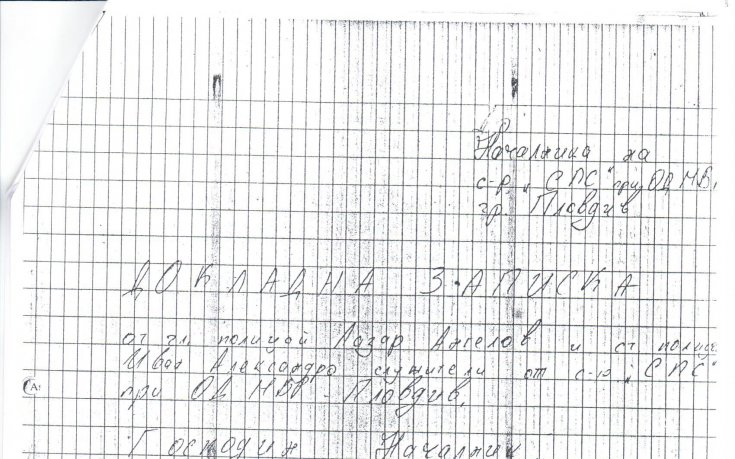 До
Началника на
с-р „СПС“ при ОД МВР
гр. Пловдив
ДОКЛАДНА ЗАПИСКА
от гл. полицай Лазар Ангелов и ст. полиц
Иван Александров служители от с-р „СПС“
при ОД МВР - Пловдив.
Господин Началник